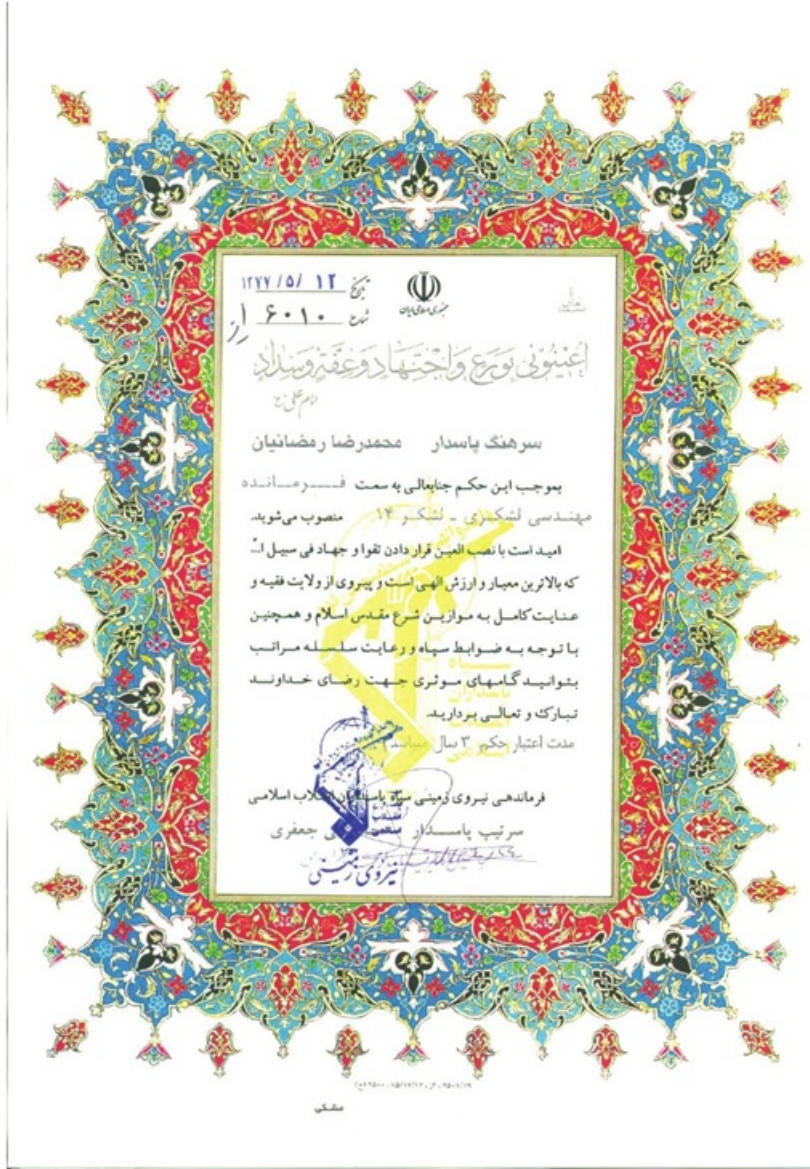 بسمه تعالی
جمهوری اسلامی ایران
تاریخ ۱۳۷۷/۵/۱۲
شماره ۶۰۱۰
اعینونی بورع واجتهاد وعفة وسداد
امام علی (ع)
سرهنگ پاسدار محمدرضا رمضانیان
بموجب این حکم جنابعالی به سمت فـــرمــانـده
مهندسی لشکری ـ لشکر ۱۴ منصوب می‌شوید.
امید است با نصب العین قرار دادن تقوا و جهاد فی سبیل ا...
که بالاترین معیار و ارزش الهی است و پیروی از ولایت فقیه و
عنایت کامل به موازین شرع مقدس اسلام و همچنین
با توجه به ضوابط سپاه و رعایت سلسله مراتب
بتوانید گامهای موثری جهت رضای خداوند
تبارک و تعالی بردارید.
مدت اعتبار حکم ۳ سال میباشد
سپاه
پاسداران
انقلاب
اسلامی
فرماندهی نیروی زمینی سپاه پاسداران انقلاب اسلامی
سرتیپ پاسـدار جعفری
نیروی زمینی
مشکی